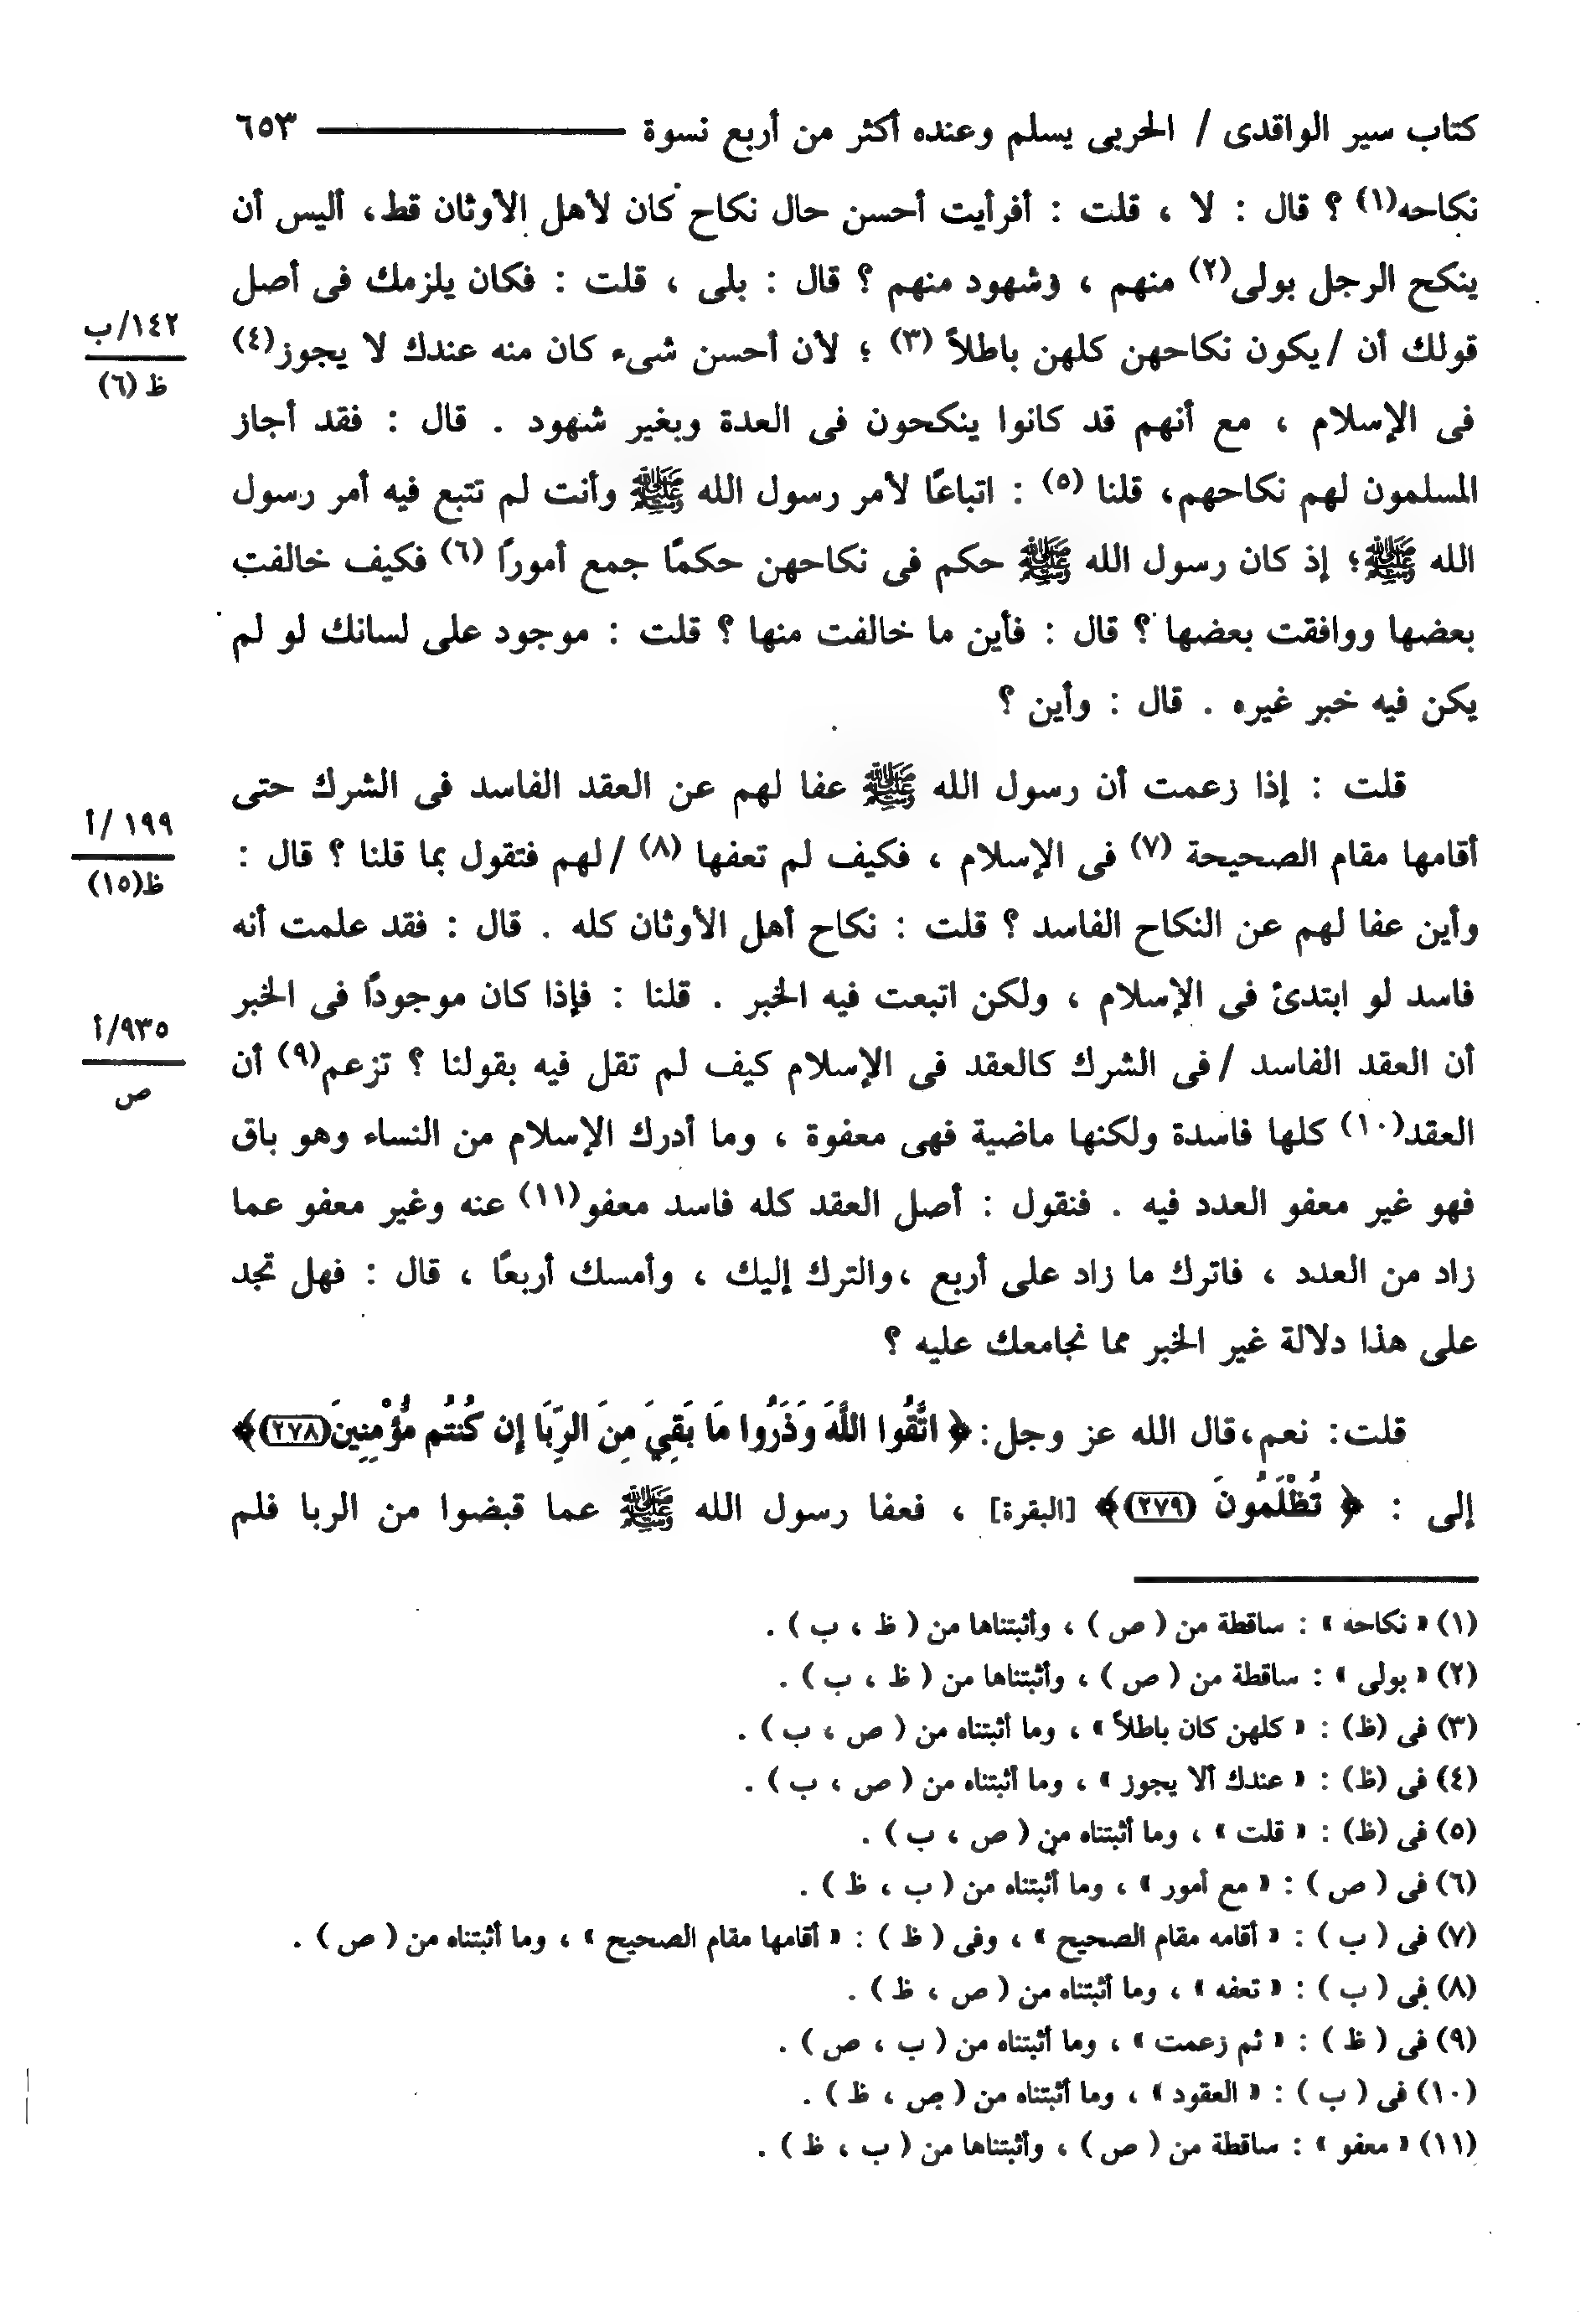 كتاب سير الواقدى / الحربى يسلم وعنده أكثر من أربع نسوة ٦٥٣
نكاحه(١) ؟ قال : لا ، قلت : أفرأيت أحسن حال نكاح كان لأهل الأوثان قط، أليس أن
ينكح الرجل بولى(٢) منهم ، وشهود منهم ؟ قال : بلى ، قلت : فكان يلزمك فى أصل
١٤٢/ب
ظ (٦)
قولك أن /يكون نكاحهن كلهن باطلاً (٣) ؛ لأن أحسن شىء كان منه عندك لا يجوز(٤)
فى الإسلام ، مع أنهم قد كانوا ينكحون فى العدة وبغير شهود . قال : فقد أجاز
المسلمون لهم نكاحهم، قلنا (٥) : اتباعًا لأمر رسول الله ﷺ وأنت لم تتبع فيه أمر رسول
الله ﷺ؛ إذ كان رسول الله ﷺ حكم فى نكاحهن حكمًا جمع أمورًا (٦) فكيف خالفت
بعضها ووافقت بعضها ؟ قال : فأين ما خالفت منها ؟ قلت : موجود على لسانك لو لم
يكن فيه خبر غيره . قال : وأين ؟
قلت : إذا زعمت أن رسول الله ﷺ عفا لهم عن العقد الفاسد فى الشرك حتى
١٩٩ /أ
ظ(١٥)
أقامها مقام الصحيحة (٧) فى الإسلام ، فكيف لم تعفها (٨) /لهم فتقول بما قلنا ؟ قال :
وأين عفا لهم عن النكاح الفاسد ؟ قلت : نكاح أهل الأوثان كله . قال : فقد علمت أنه
فاسد لو ابتدئ فى الإسلام ، ولكن اتبعت فيه الخبر . قلنا : فإذا كان موجودًا فى الخبر
٩٣٥/أ
ص
أن العقد الفاسد /فى الشرك كالعقد فى الإسلام كيف لم تقل فيه بقولنا ؟ تزعم(٩) أن
العقد(١٠) كلها فاسدة ولكنها ماضية فهى معفوة ، وما أدرك الإسلام من النساء وهو باق
فهو غير معفو العدد فيه . فنقول : أصل العقد كله فاسد معفو(١١) عنه وغير معفو عما
زاد من العدد ، فاترك ما زاد على أربع ،والترك إليك ، وأمسك أربعًا ، قال : فهل تجد
على هذا دلالة غير الخبر مما نجامعك عليه ؟
قلت: نعم،قال الله عز وجل:﴿ اتَّقُوا اللَّهَ وَذَرُوا مَا بَقِيَ مِنَ الرِّبَا إِن كُنتُم مُّؤْمِنِينَ(٢٧٨)﴾
إلى : ﴿ تُظْلَمُونَ (٢٧٩)﴾ [البقرة] ، فعفا رسول الله ﷺ عما قبضوا من الربا فلم
(١) « نكاحه » : ساقطة من ( ص ) ، وأثبتناها من ( ظ ، ب ) .
(٢) « بولى » : ساقطة من ( ص ) ، وأثبتناها من ( ظ ، ب ) .
(٣) فى (ظ) : « كلهن كان باطلاً » ، وما أثبتناه من ( ص ، ب ) .
(٤) فى (ظ) : « عندك ألا يجوز » ، وما أثبتناه من ( ص ، ب ) .
(٥) فى (ظ) : « قلت » ، وما أثبتناه من ( ص ، ب ) .
(٦) فى ( ص ) : « مع أمور » ، وما أثبتناه من ( ب ، ظ ) .
(٧) فى ( ب ) : « أقامه مقام الصحيح » ، وفى ( ظ ) : « أقامها مقام الصحيح » ، وما أثبتناه من ( ص ) .
(٨) فى ( ب ) : « تعفه » ، وما أثبتناه من ( ص ، ظ ) .
(٩) فى ( ظ ) : « ثم زعمت » ، وما أثبتناه من ( ب ، ص ) .
(١٠) فى ( ب ) : « العقود » ، وما أثبتناه من ( ص ، ظ ) .
(١١) « معفو » : ساقطة من ( ص ) ، وأثبتناها من ( ب ، ظ ) .